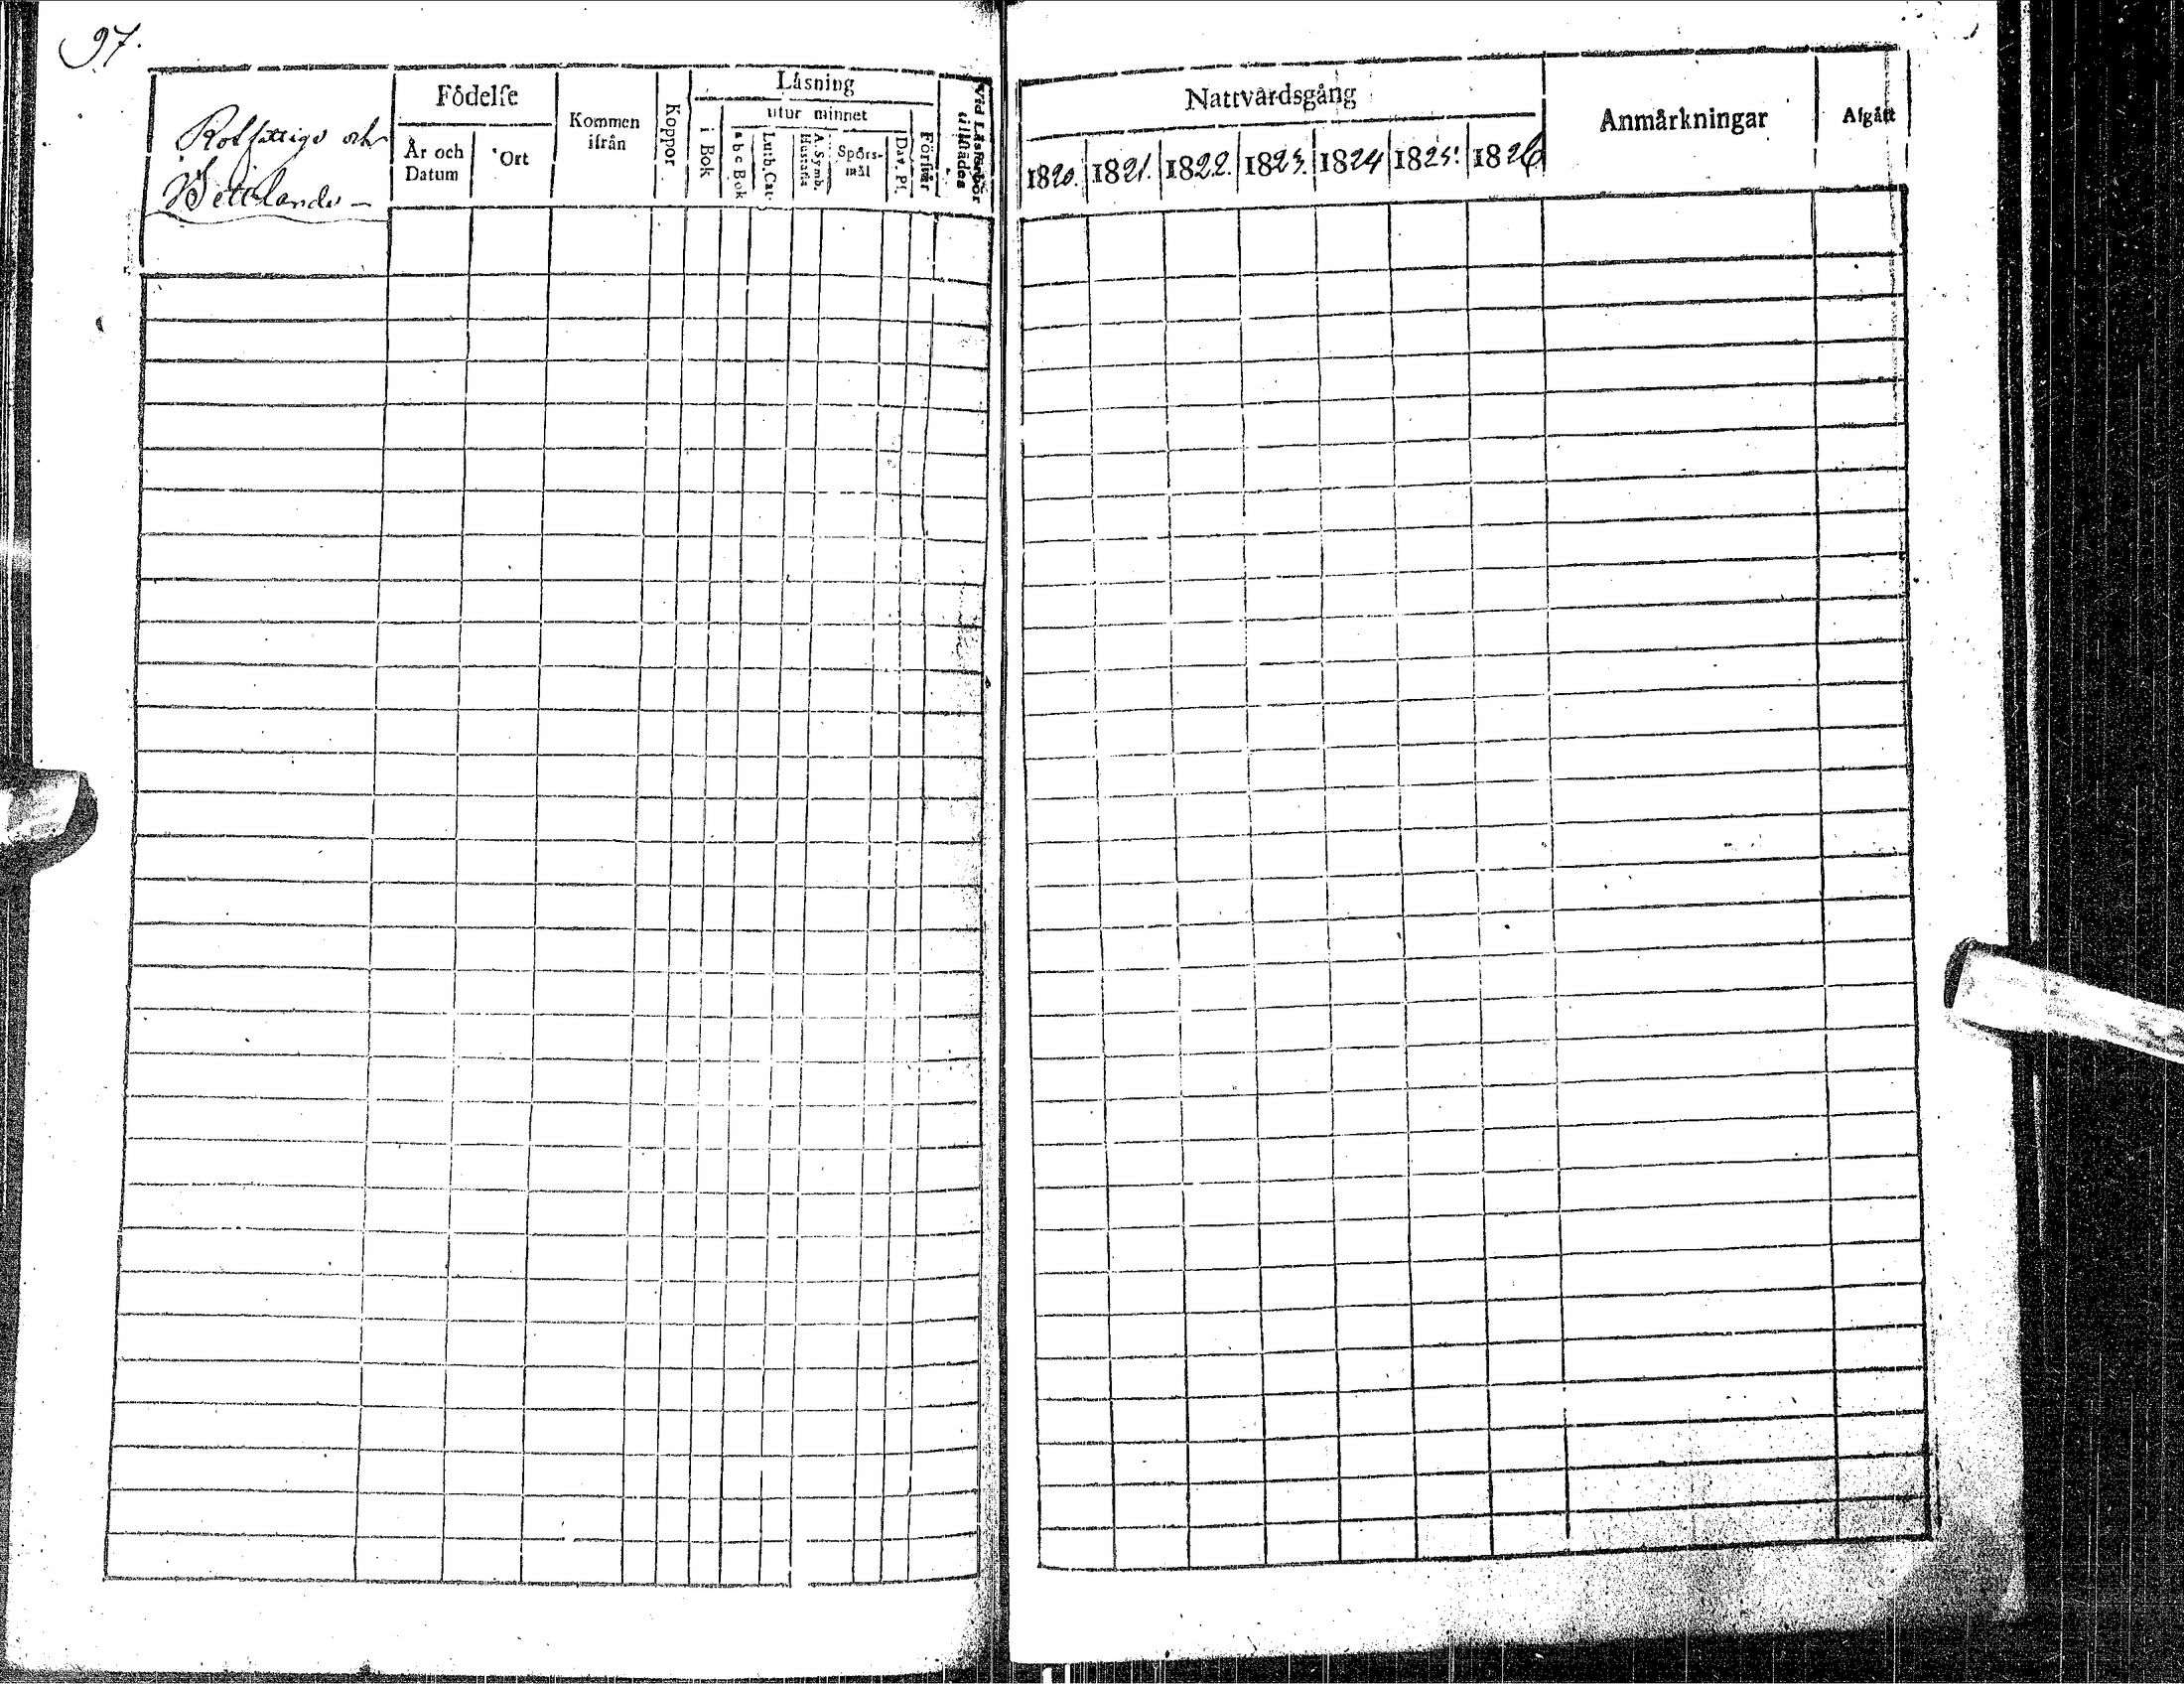 97.
Rotfattige och
Födelse
År och Datum
Ort
Kommen ifrån
Koppor
Läsning
i Bok
utur minnet
a b c Bok
Luth. Cat.
A. Symb. Hustafla
Spörs-mål
Dav. Ps.
Förstår
Vid Läsförhör tillstädes
Nattvardsgång
1820. 1821. 1822. 1823. 1824 1825. 1826
Anmärkningar
Afgått